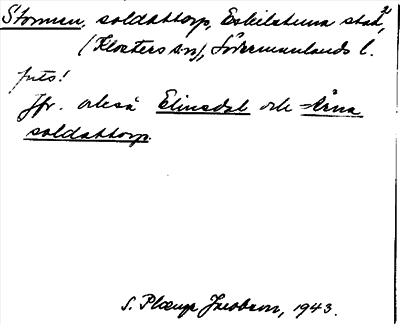 Stormen, soldattorp, Eskilstuna stad,
(Klosters sn), Södermanlands l.
fints!
Jfr. också Elinsdal och
soldattorp.
S. Plæng Jacobson, 1943.